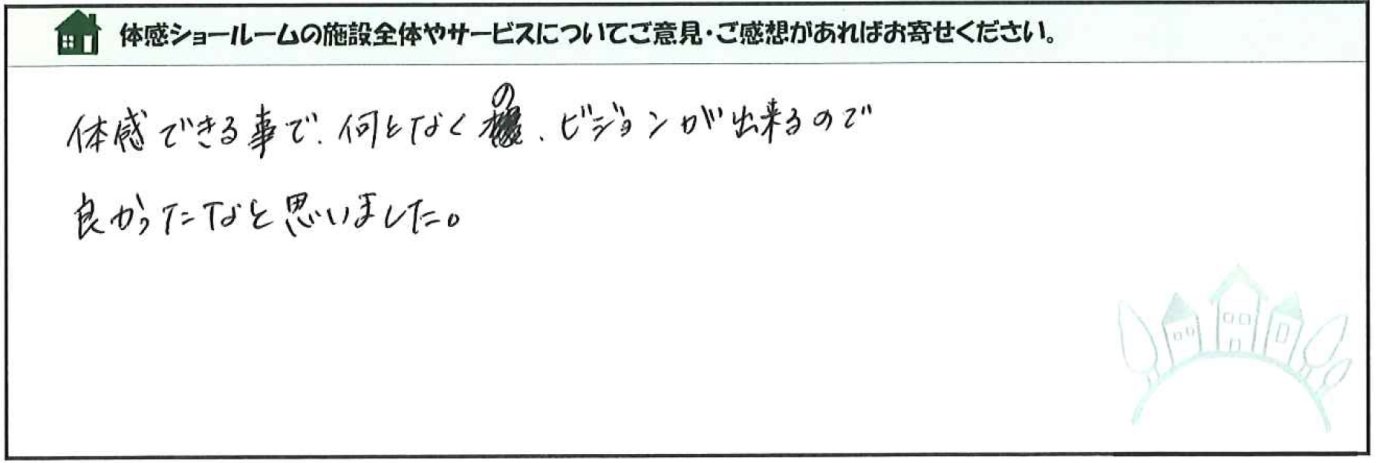 体感ショールームの施設全体やサービスについてご意見・ご感想があればお寄せください。
体感できる事で、何となくの、ビジョンが出来るので
良かったなと思いました。